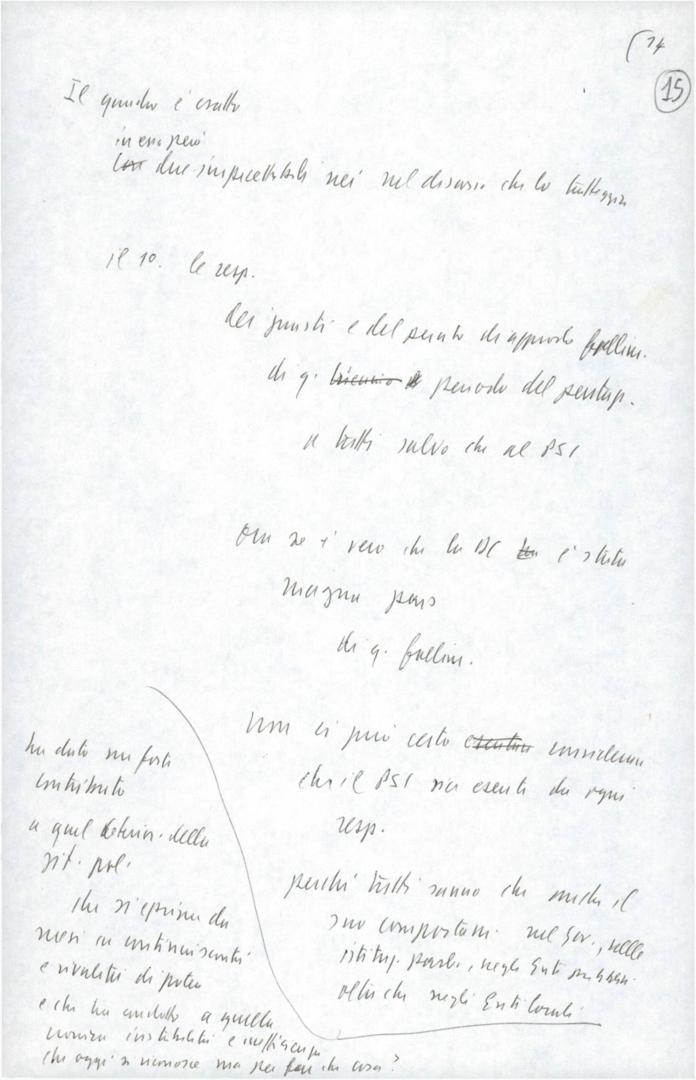 14
15
Il quadro è esatto
in esso però
due inaccettabili nei nel discorso che lo tratteggia
il 1º. le resp.
dei guasti e del punto di approdo fallim.
di q. triennio periodo del pentap.
a tutti salvo che al PSI
Ora se è vero che la DC è stata
magna pars
di q. fallim.
Non si può certo considerare
che il PSI sia esente da ogni
resp.
perché tutti sanno che anche il
suo comportam. nel Gov., nelle
istituz. parl., negli Enti
oltre che negli Enti locali.
ha dato un forte
contributo
a quel deterior. della
sit. pol.
che si esprime da
mesi in continui scontri
e rivalità di potere
e che ha condotto a quella
instabilità e
che oggi si riconosce ma per fare che cosa?